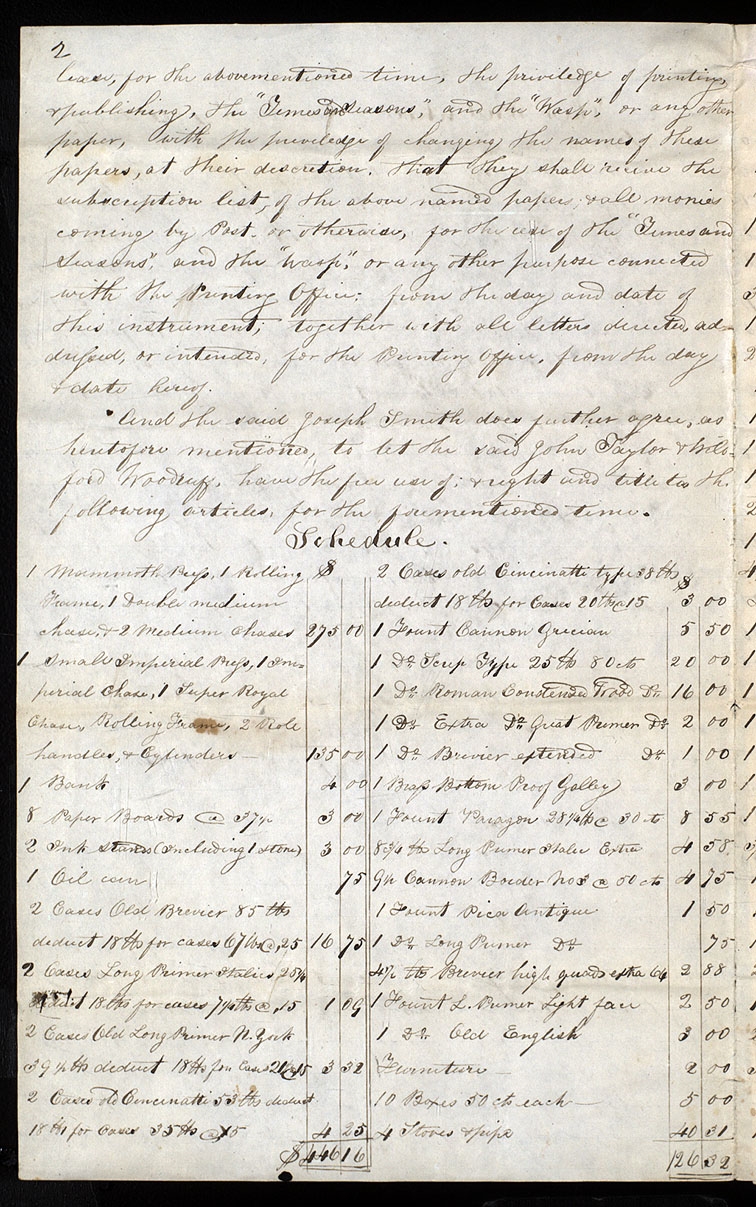 2
lease, for the abovementioned time, the priviledge of printing
& publishing, the "Times and Seasons," and the "Wasp", or any other
paper, with the priviledge of changing the names of these
papers, at their discretion. That they shall recieve the
subscription list, of the above named papers, & all monies
coming by Post. or otherwise, for the use of the "Times and
Seasons", and the "Wasp", or any other purpose connected
with the Printing Office: from the day and date of
this instrument; together with all letters directed, ad-
dressed, or intended, for the Printing Office, from the day
& date hereof.
And the said Joseph Smith does further agree, as
heretofore mentioned, to let the said John Taylor & Wil-
ford Woodruff, have the free use of; & right and title to the
following articles, for the forementioned time.
Schedule.
1 Mammoth Press, 1 Rolling $
Frame, 1 Double medium
chase, & 2 Medium Chases 275 00
1 Small Imperial Press, 1 Im-
perial Chase, 1 Super Royal
Chase, Rolling Frame, 2 Role
handles, & Cylinders — 135 00
1 Bank 4 00
8 Paper Boards @ 37½ 3 00
2 Ink stands (Including 1 stone) 3 00
1 Oil can 75
2 Cases Old Brevier 85 lbs
deduct 18 lbs for cases 67 lbs @ ,25 16 75
2 Cases Long Primer Italics 25¼
deduct 18 lbs for cases 7¼ lbs @ ,15 1 09
2 Cases Old Long Primer N. York
39½ lbs deduct 18 lbs for Cases 21½ @ 15 3 32
2 Cases old Cincinatti 53 lbs deduct
18 lbs for Cases 35 lbs @ 15 4 25
$ 446 16
2 Cases old Cincinatti type 38 lbs $
deduct 18 lbs for Cases 20 lbs @ 15 3 00
1 Fount Cannon Grecian 5 50
1 Do. Scrip Type 25 lbs 80 cts 20 00
1 Do. Roman Condensed Do. 16 00
1 Do. Extra Do. Great Primer Do. 2 00
1 Do. Brevier extended Do. 1 00
1 Brass Bottom Proof Galley 3 00
1 Fount Paragon 28½ lbs @ 30 cts 8 55
8¾ lbs Long Primer Italic Extra 4 58
9½ Cannon Boarder No 3 @ 50 cts 4 75
1 Fount Pica Antique 1 50
1 Do. Long Primer Do. 75
4½ lbs Brevier high quads extra 64 2 88
1 Fount L. Primer Light face 2 50
1 Do. Old English 3 00
Furniture — 2 00
10 Boxes 50 cts each — 5 00
4 Stoves & pipe 40 31
126 32